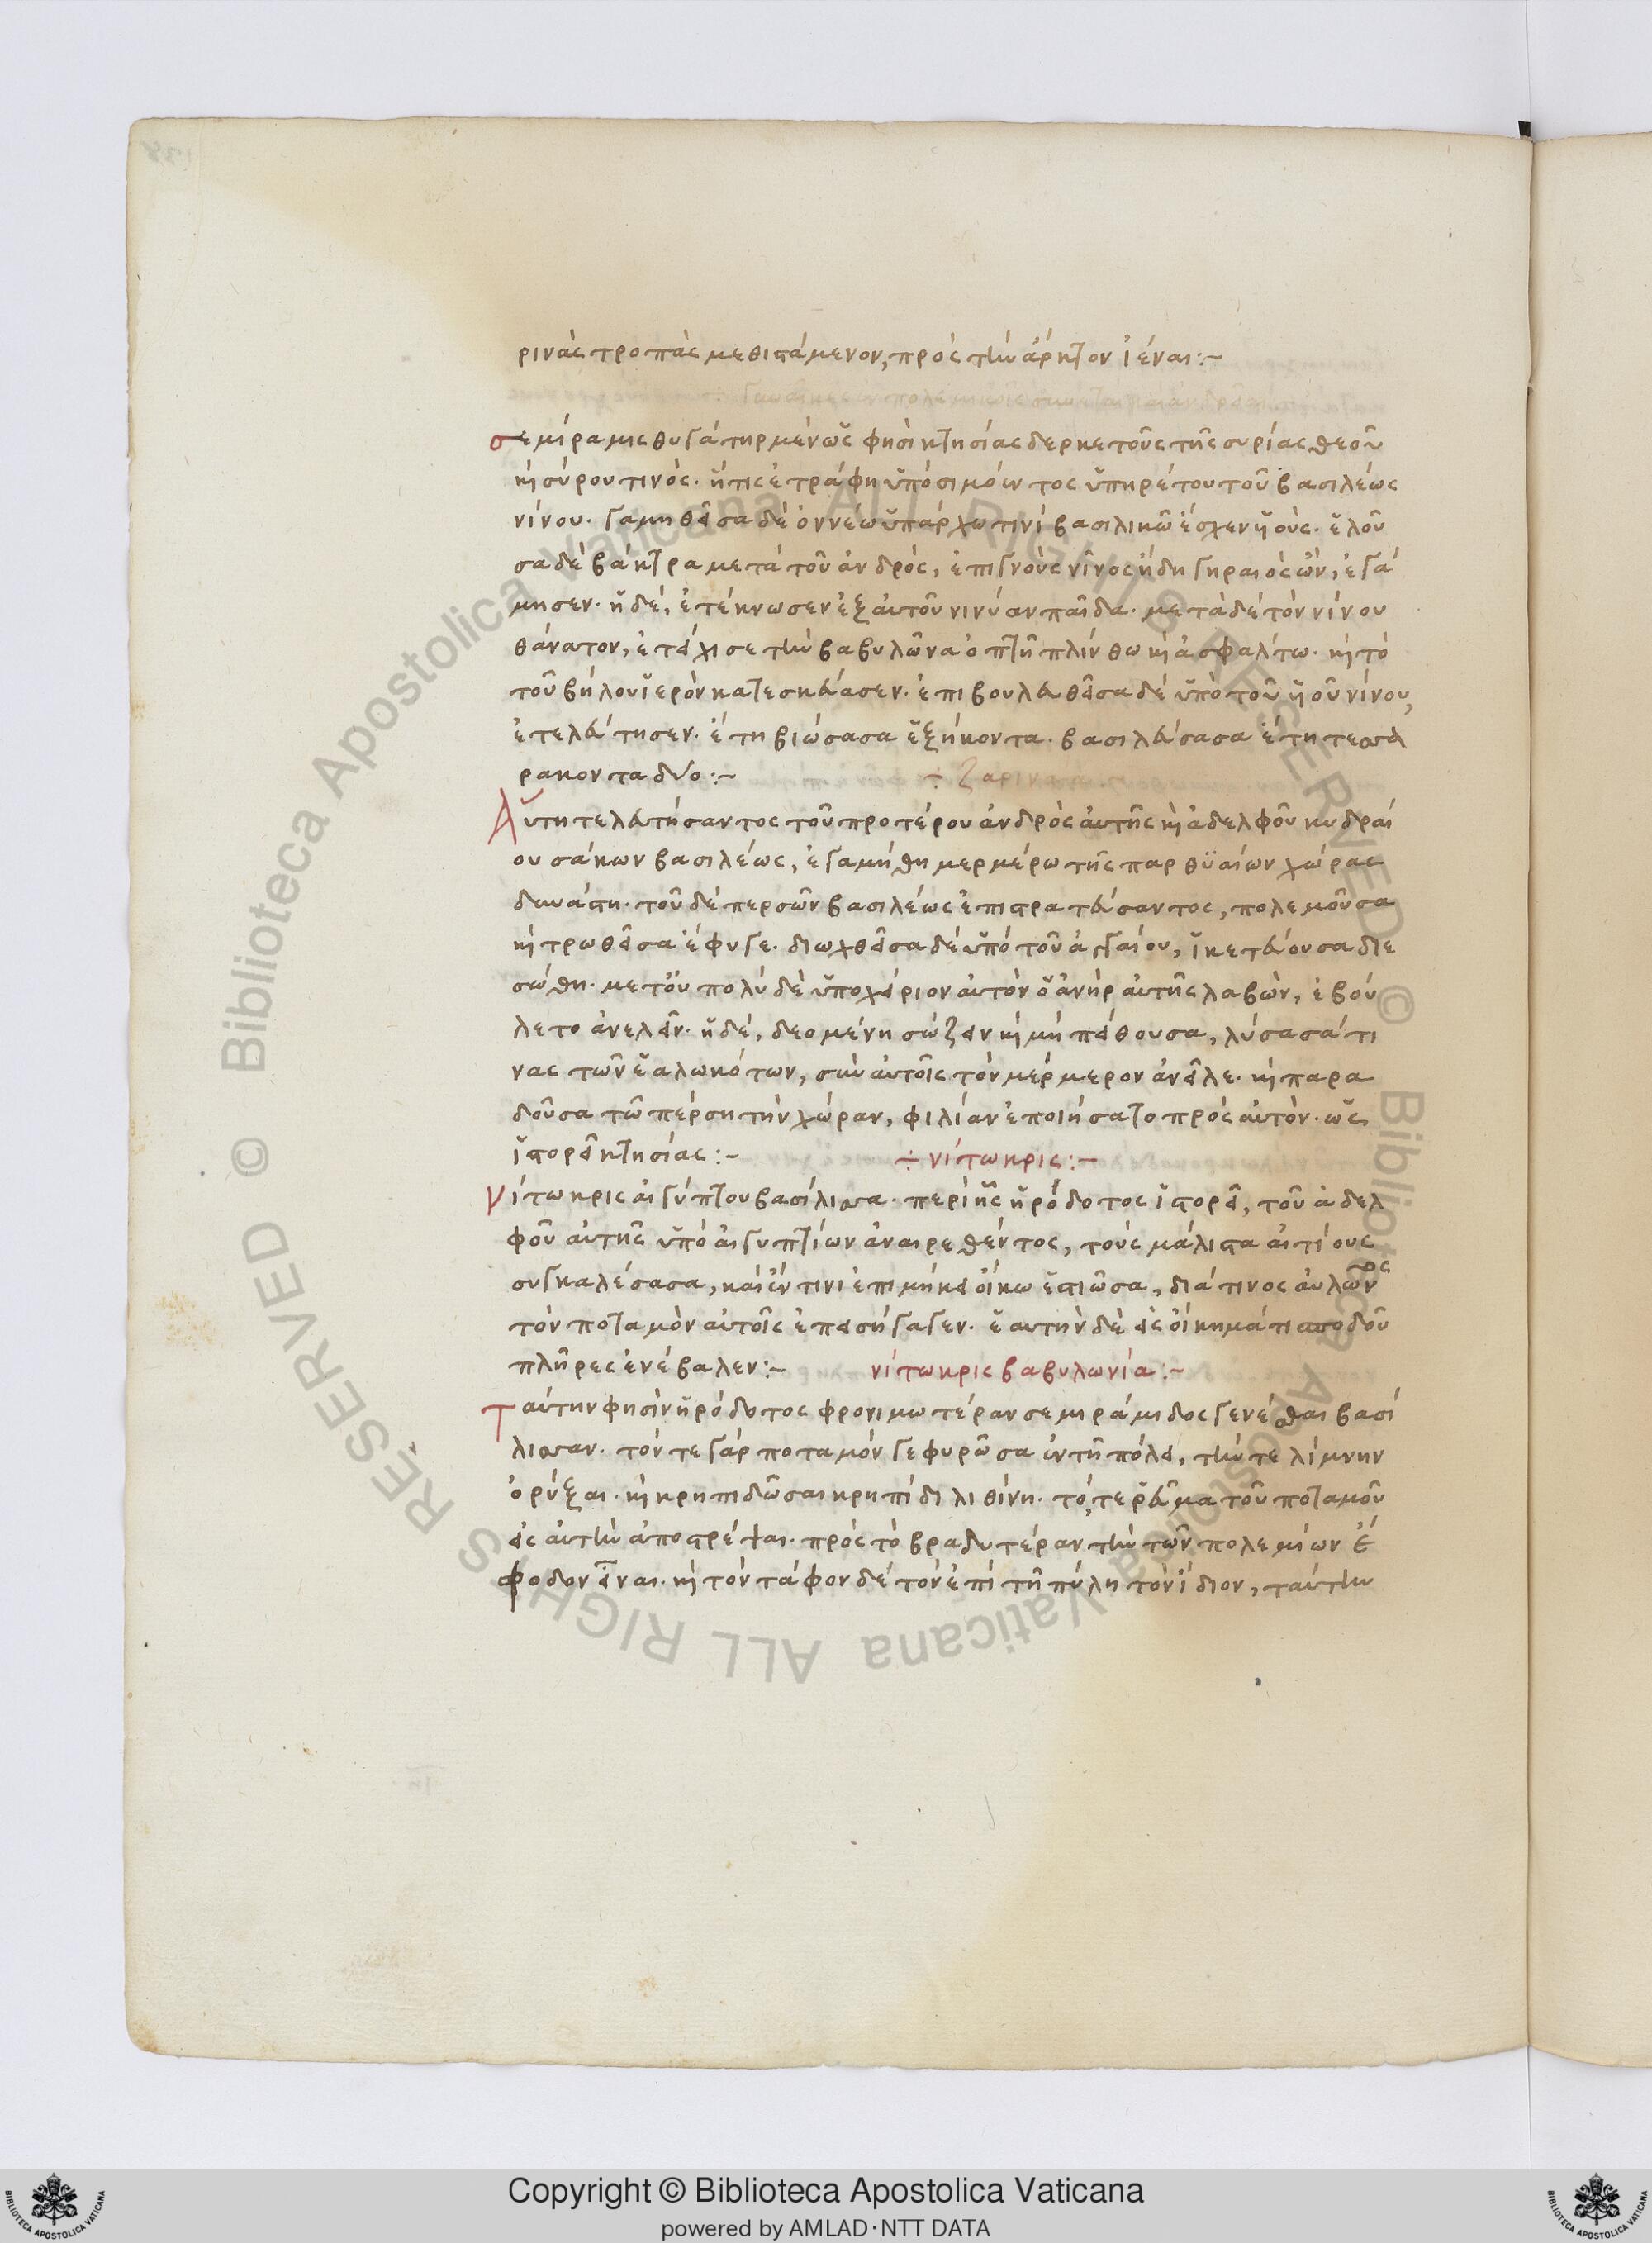 ρινὰς τροπὰς μεθιστάμενον, πρὸς τὴν ἄρκτον ἰέναι :~
σεμίραμις θυγάτηρ μὲν ὥς φησὶ κτησίας δερκετοῦς τῆς συρίας θεοῦ
κ̀ σύρου τινός· ἥτις ἐτράφη ὑπὸ σιμόεντος ὑπηρέτου τοῦ βασιλέως
νίνου· γαμηθεῖσα δὲ ὀννέω ὑπάρχω τινὶ βασιλικῶ ἔσχεν υἱούς· ἑλοῦ
σα δὲ βάκτρα μετὰ τοῦ ἀνδρός, ἐπιγνοὺς νῖνος ἤδη γηραιὸς ὢν, ἐγά
μησεν· ἡ δὲ, ἐτέκνωσεν ἐξ αὐτοῦ νινύαν παῖδα· μετὰ δὲ τὸν νίνου
θάνατον, ἐτείχισε τὴν βαβυλῶνα ὀπτῆ πλίνθω κ̀ ἀσφάλτω· κ̀ τὸ
τοῦ βήλου ἱερὸν κατεσκεύασεν· ἐπιβουλευθεῖσα δὲ ὑπὸ τοῦ υἱοῦ νίνου,
ἐτελεύτησεν· ἔτη βιώσασα ἑξήκοντα· βασιλεύσασα ἔτη τεσσα
ρακοντα δύο :~ ÷ ζαριναία
Αὕτη τελευτήσαντος τοῦ προτέρου ἀνδρὸς αὐτῆς κ̀ ἀδελφοῦ κυδραί
ου σάκων βασιλέως, ἐγαμήθη μερμέρω τῆς παρθϋαίων χώρας
δυνάστη· τοῦ δὲ περσῶν βασιλέως ἐπιστρατεύσαντος, πολεμοῦσα
κ̀ τρωθεῖσα ἔφυγε· διωχθεῖσα δὲ ὑπὸ τοῦ στρυαγγαίου, ἱκετεύουσα διε
σώθη· μετ' οὐ πολὺ δὲ ὑποχείριον αὐτὸν ὁ ἀνὴρ αὐτῆς λαβὼν, ἐβού
λετο ἀνελεῖν· ἡ δὲ, δεομένη σώζειν κ̀ μὴ πείθουσα, λύσασά τι
νας τῶν ἑαλωκότων, σὺν αὐτοῖς τὸν μέρμερον ἀνεῖλε· κ̀ παρα
δοῦσα τῶ πέρση τὴν χώραν, φιλίαν ἐποιήσατο πρὸς αὐτόν· ὡς
ἱστορεῖ κτησίας :~ ÷ νίτωκρις :~
Νίτωκρις αἰγύπτου βασίλισσα· περὶ ἧς ἡρόδοτος ἱστορεῖ, τοῦ ἀδελ
φοῦ αὐτῆς ὑπὸ αἰγυπτίων ἀναιρεθέντος, τοὺς μάλιστα αἰτίους
συγκαλέσασα, καὶ ἔν τινι ἐπιμήκει οἴκω ἑστιῶσα, διά τινος αὐλῶνος
τὸν ποταμὸν αὐτοῖς ἐπεισήγαγεν· ἑαυτὴν δὲ εἰς οἴκημά τι σποδοῦ
πλῆρες ἐνέβαλεν :~ νίτωκρις βαβυλωνία :~
Ταύτην φησὶν ἡρόδοτος φρονιμωτέραν σεμιράμιδος γενέσθαι βασί
λισσαν· τόν τε γὰρ ποταμὸν γεφυρῶσα ἐν τῆ πόλει, τήν τε λίμνην
ὀρύξαι· κ̀ κρηπιδῶσαι κρηπίδι λιθίνη· τό, τε ῥεῦμα τοῦ ποταμοῦ
εἰς αὐτὴν ἀποστρέψαι· πρὸς τὸ βραδυτέραν τὴν τῶν πολεμίων ἔ
φοδον εἶναι· κ̀ τὸν τάφον δὲ τὸν ἐπὶ τῆ πύλη τὸν ἴδιον, ταύτην
© Biblioteca Apostolica Vaticana ALL RIGHTS RESERVED © Biblioteca Apostolica Vaticana ALL RIGHTS RESERVED
Copyright © Biblioteca Apostolica Vaticana
powered by AMLAD·NTT DATA
BIBLIOTECA APOSTOLICA VATICANA
BIBLIOTECA APOSTOLICA VATICANA